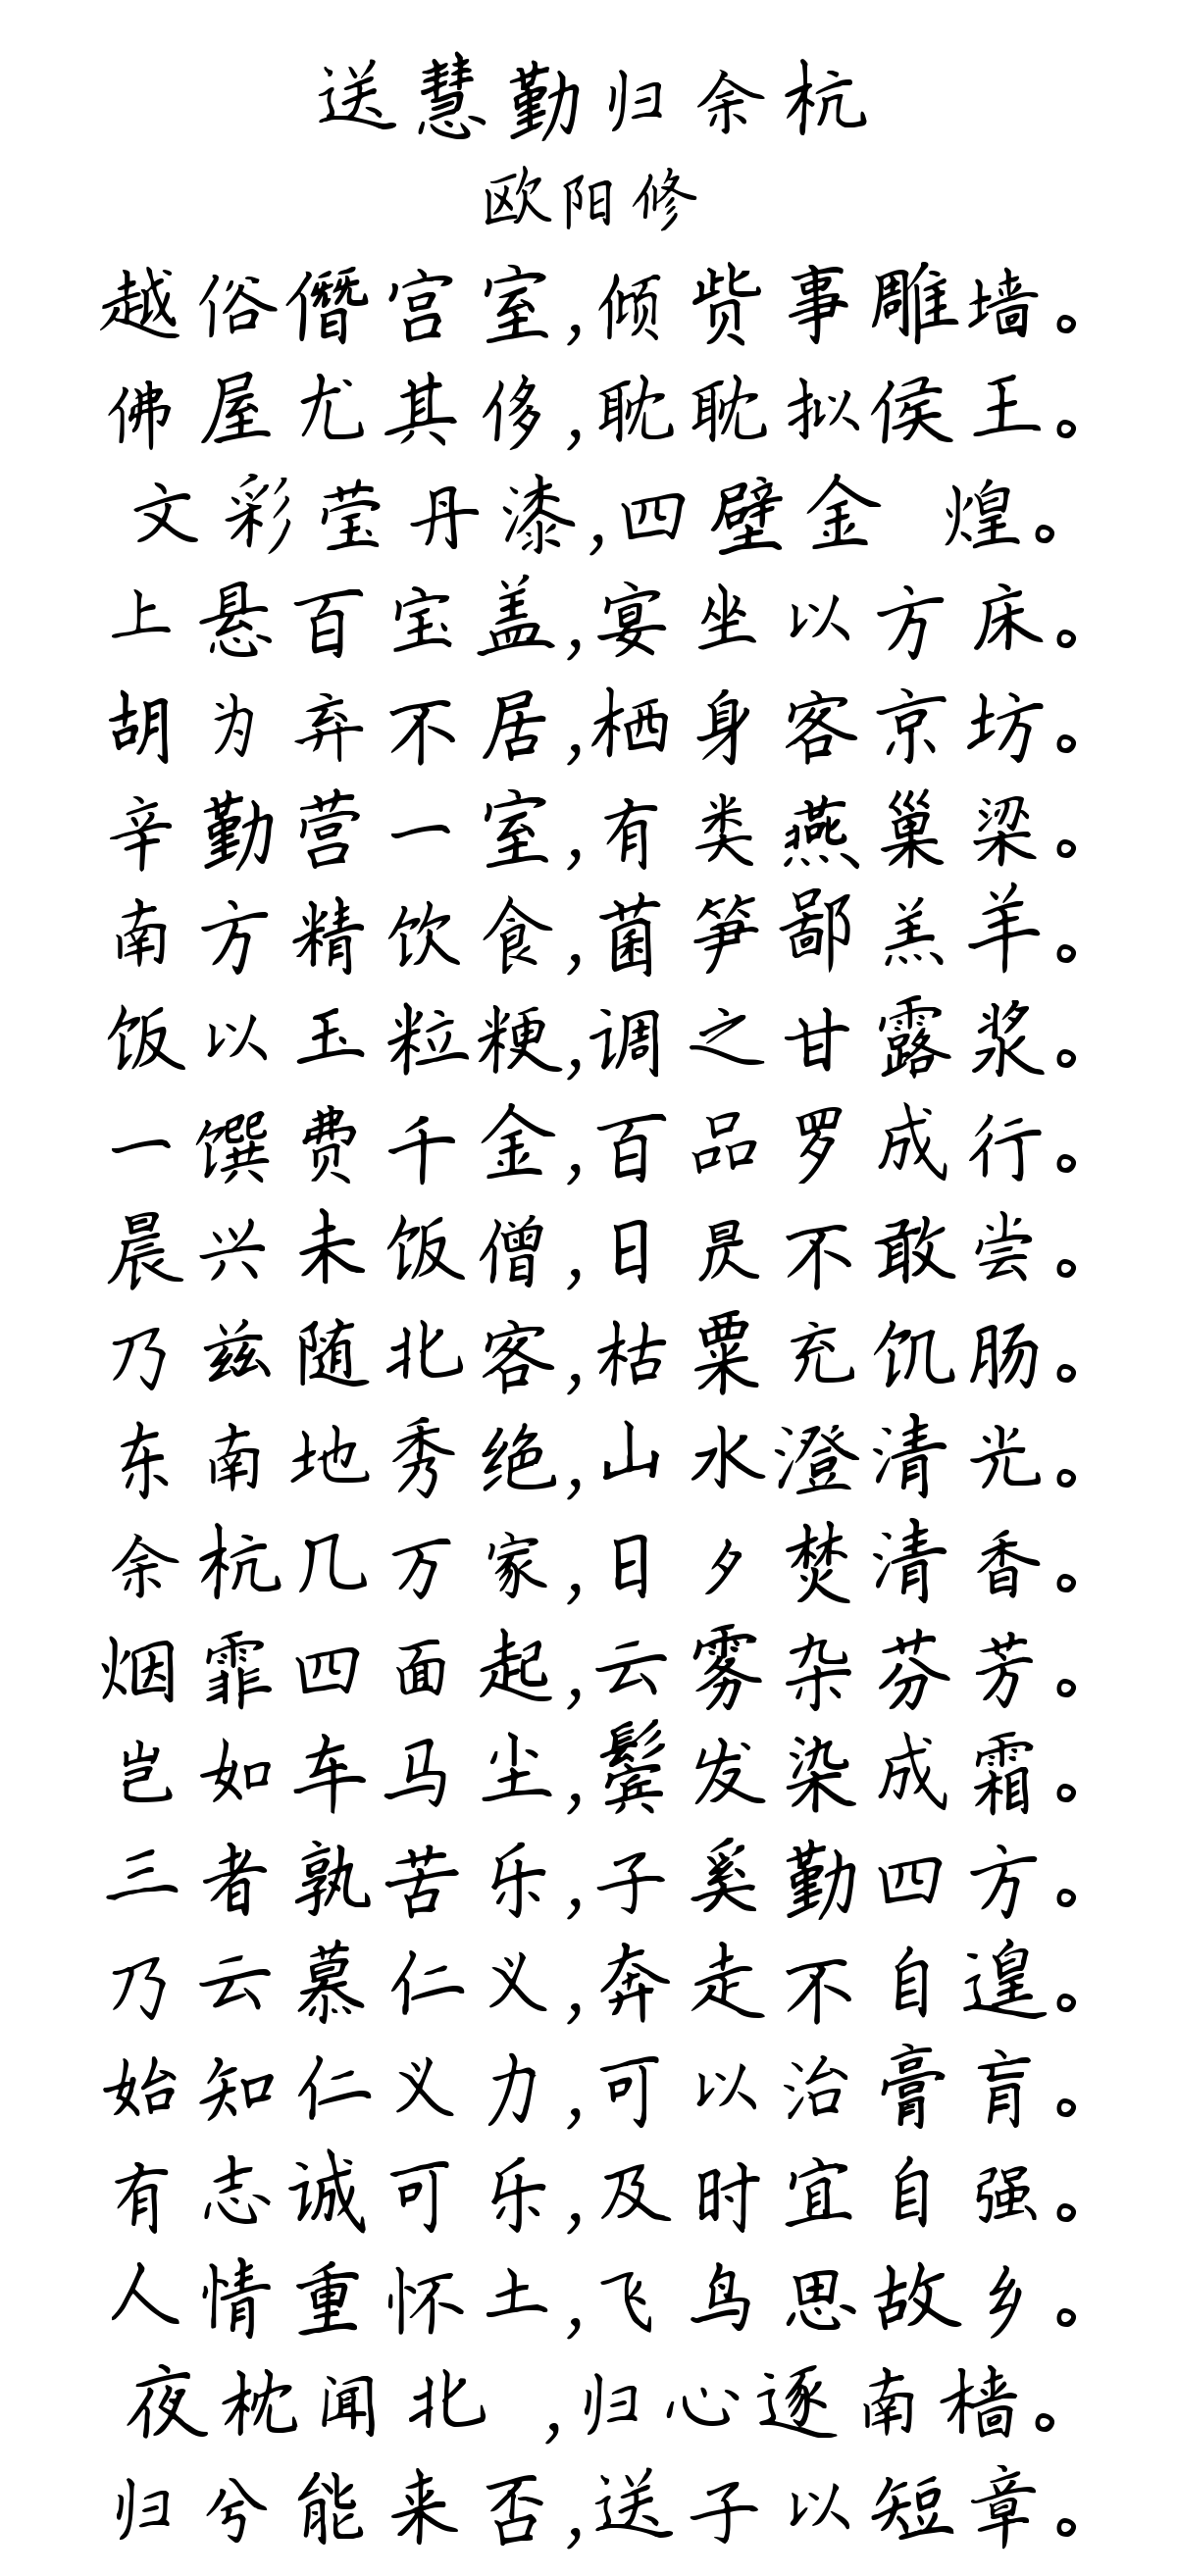 送慧勤归余杭
欧阳修
越俗僭宫室,倾赀事雕墙。
佛屋尤其侈,耽耽拟侯王。
文彩莹丹漆,四壁金 煌。
上悬百宝盖,宴坐以方床。
胡为弃不居,栖身客京坊。
辛勤营一室,有类燕巢梁。
南方精饮食,菌笋鄙羔羊。
饭以玉粒粳,调之甘露浆。
一馔费千金,百品罗成行。
晨兴未饭僧,日昃不敢尝。
乃兹随北客,枯粟充饥肠。
东南地秀绝,山水澄清光。
余杭几万家,日夕焚清香。
烟霏四面起,云雾杂芬芳。
岂如车马尘,鬓发染成霜。
三者孰苦乐,子奚勤四方。
乃云慕仁义,奔走不自遑。
始知仁义力,可以治膏肓。
有志诚可乐,及时宜自强。
人情重怀土,飞鸟思故乡。
夜枕闻北 ,归心逐南樯。
归兮能来否,送子以短章。